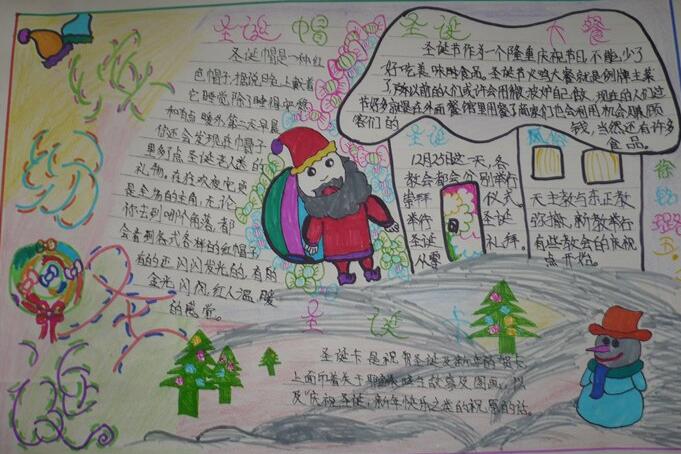 圣诞帽
圣诞帽是一种红
色帽子,据说晚上戴着
它睡觉除了睡得安稳
和有点暖外,第二天早晨
你还会发现在帽子
里多点圣诞老人类的
礼物,在狂欢夜它更
是全场的主角,无论
你去到哪个角落,都
会看到各式各样的红帽子
有的还闪闪发光的,有的
金光闪闪,红人温暖
的感觉。
圣诞大餐
圣诞节作为一个隆重庆祝节日,不能少了
好吃美味的食品。圣诞节火鸡大餐就是例牌主菜
了,以前的人们或许会用微波炉自己做,现在的人们过
节好多就是在外面餐馆里用餐了,商家们也会利用机会赚顾
客们的
钱,当然还有许多
食品。
圣诞
12月25这一天,各
教会都会分别举行
崇拜仪式。
举行圣诞
圣诞礼拜。
从零
天主教与东正教
弥撒,新教举行
有些教会的庆祝
点开始。
圣诞卡
圣诞卡是祝贺圣诞及新年的贺卡,
上面印着关于耶稣降生故事及图画,以
及“庆祝圣诞,新年快乐之类的祝愿的话。